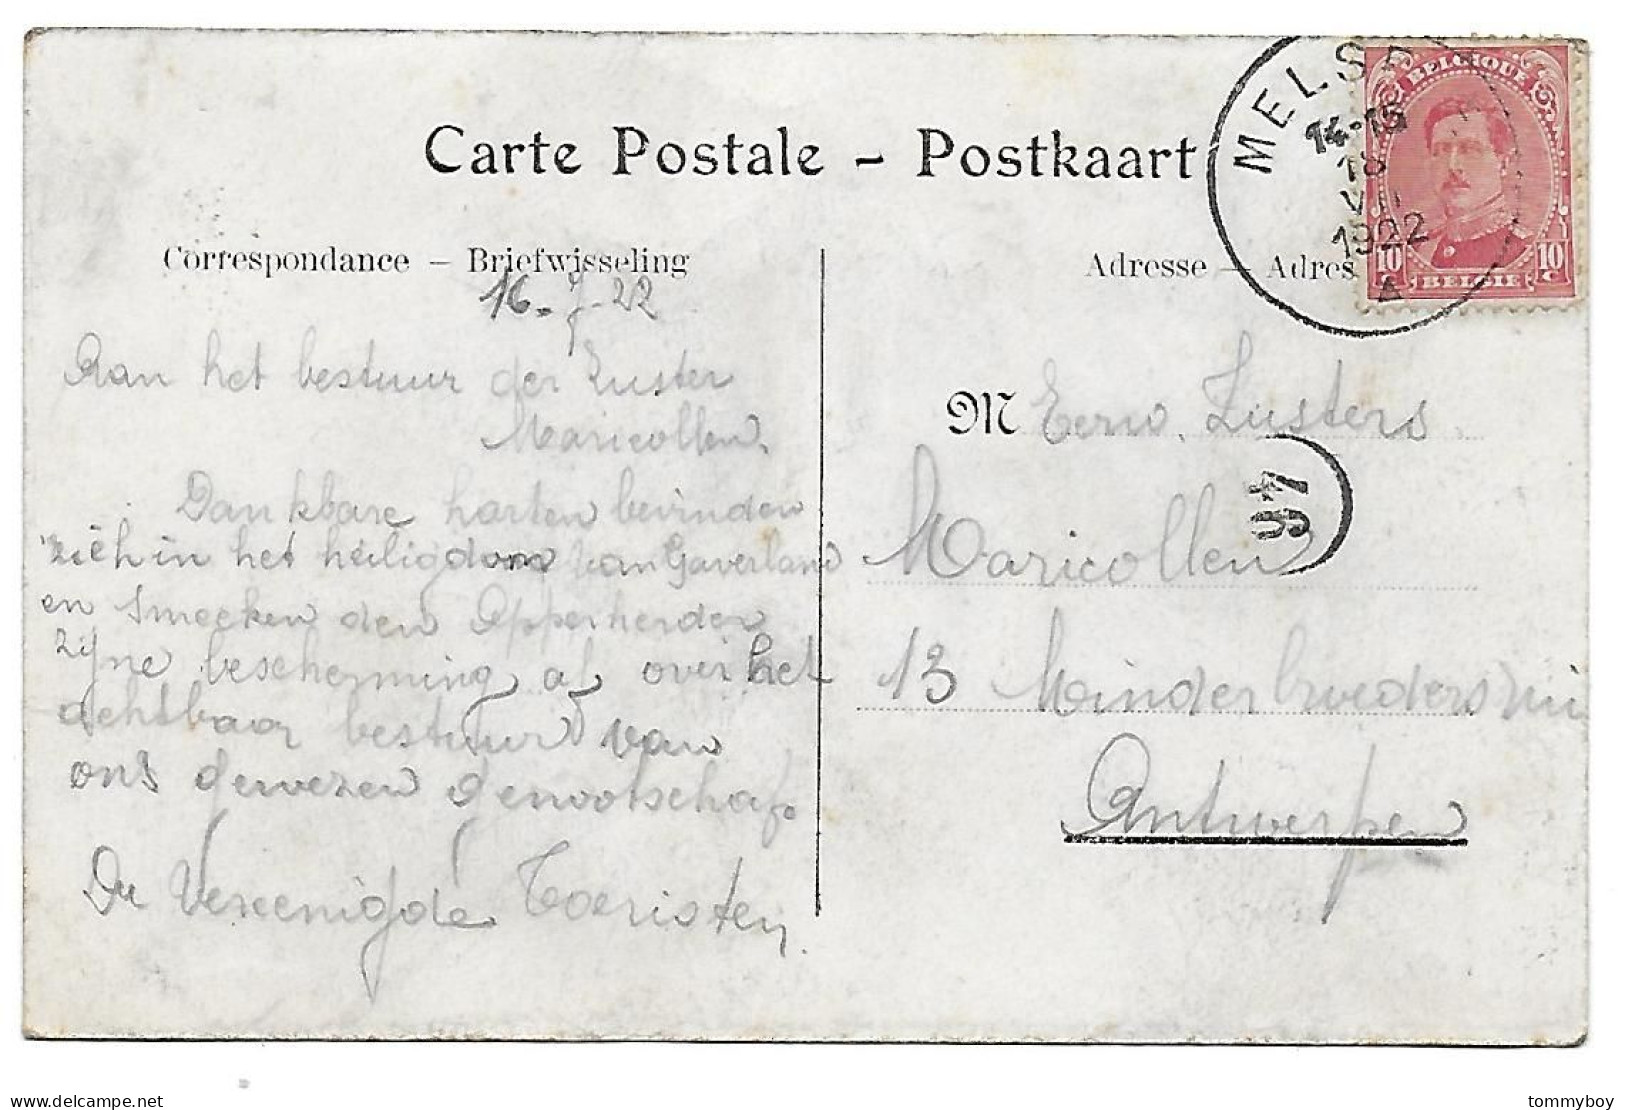 Carte Postale - Postkaart
Correspondance - Briefwisseling
16-7-22
Aan het bestuur der Zuster
Maricollen.
Dankbare harten bevinden
zich in het heiligdom van Gaverland
en smeeken den Opperherder
zijne bescherming af over het
achtbaar bestuur van
ons gewezen genootschap.
De Vereenigde Toeristen.
Adresse - Adres
M Eerw. Zusters
Maricollen
13 Minderbroedersrui
Antwerpen
MELSE
14-15
18
VII
1922
A
BELGIQUE
10 c 10 c
BELGIE
tommyboy